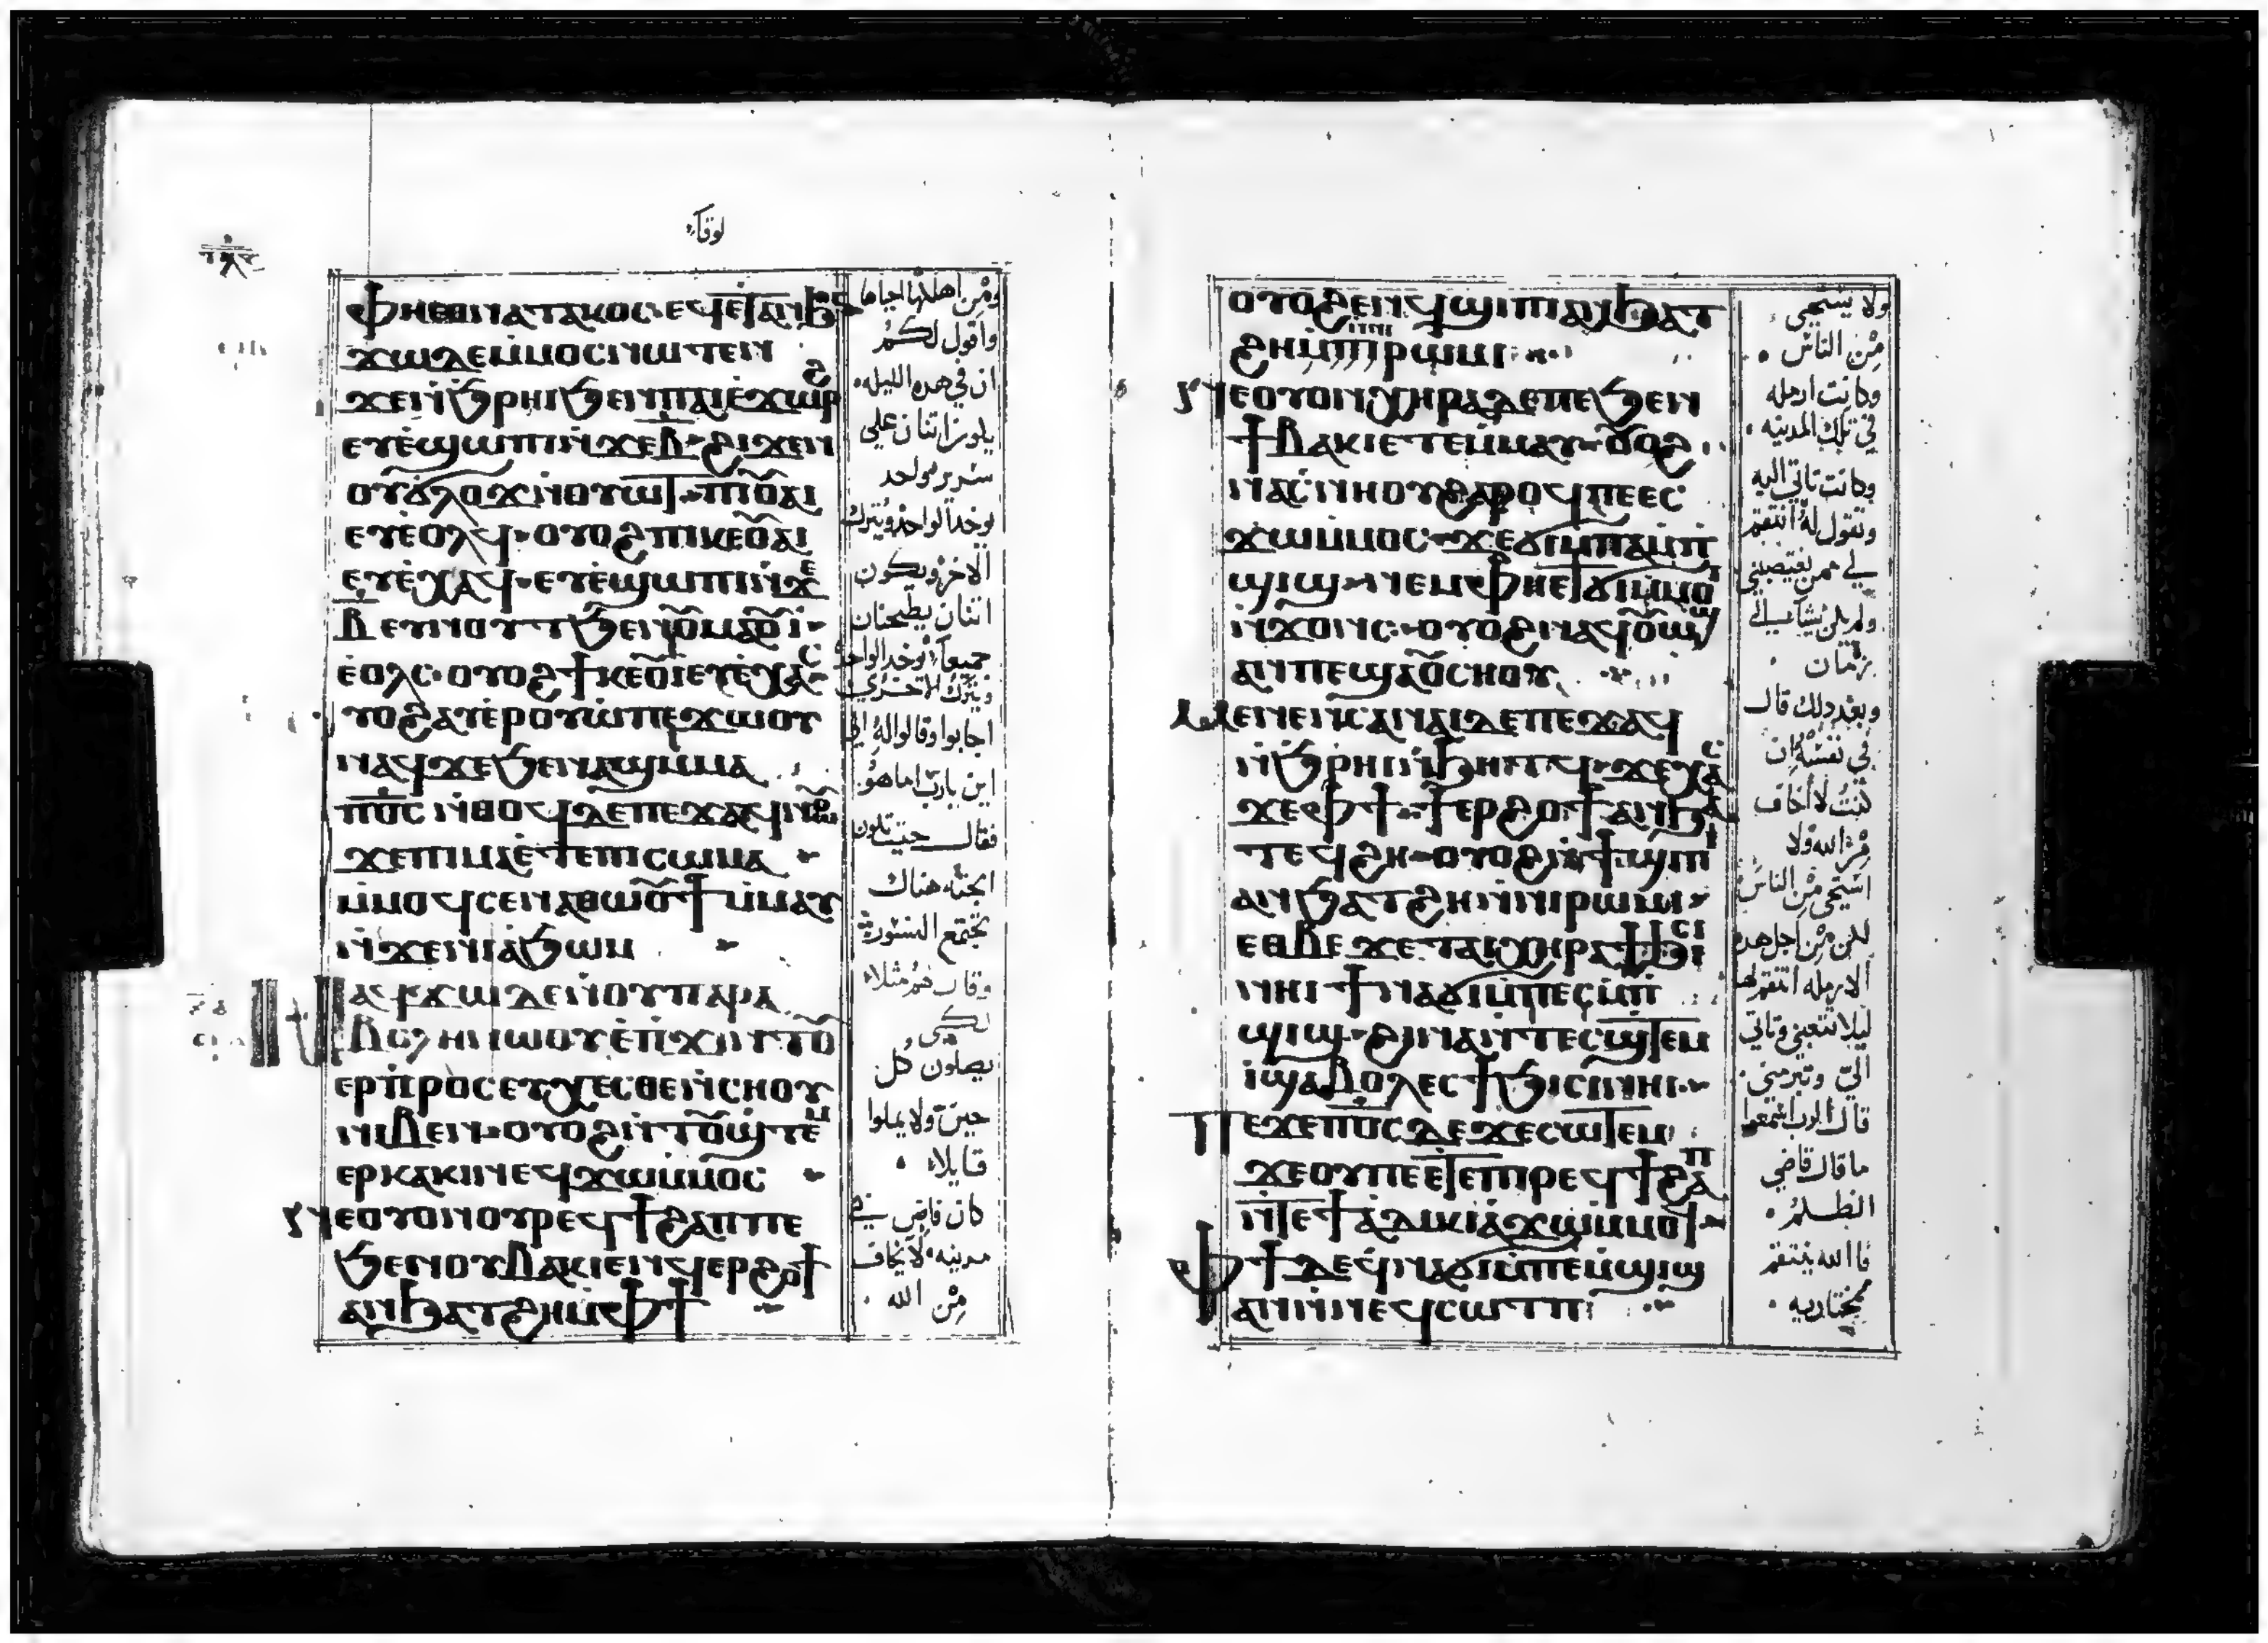 لوقا
ⲫⲏⲉⲑⲛⲁⲧⲁⲕⲟⲥ ⲉϥⲉⲧⲁⲛϧⲟⲥ
ϫⲱⲇⲉⲙⲙⲟⲥⲛⲱⲧⲉⲛ
ϫⲉⲛ̀ϧⲣⲏⲓϧⲉⲛⲡⲁⲓⲉ̀ϫⲱⲣϩ
ⲉⲩⲉ̀ϣⲱⲡⲓⲛ̀ϫⲉⲃ̅ ϩⲓϫⲉⲛ
ⲟⲩϭⲗⲟϫⲛ̀ⲟⲩⲱⲧ ⲡⲓⲟ̅ⲩⲁⲓ
ⲉⲩⲉ̀ⲟⲗϥ ⲟⲩⲟϩⲡⲓⲕⲉⲟ̅ⲩⲁⲓ
ⲉⲩⲉ̀ⲭⲁϥ ⲉⲩⲉ̀ϣⲱⲡⲓⲛ̀ϫⲉ
ⲃ̅ ⲉⲩⲛⲟⲩⲧϧⲉⲛⲟⲩⲙⲁⲟⲩⲓ̀
ⲉ̀ⲟⲗⲥ ⲟⲩⲟϩϯⲕⲉⲟ̅ⲩⲓⲉⲩⲉ̀ⲭⲁⲥ
ⲩⲟϩⲁⲩⲉⲣⲟⲩⲱ̀ⲡⲉϫⲱⲟⲩ
ⲛⲁϥϫⲉϧⲉⲛⲁϣⲙⲙⲁ
ⲡⲟ̅ⲥ̅ ⲛ̀ⲑⲟϥⲇⲉⲡⲉϫⲁϥⲛⲱⲟⲩ
ϫⲉⲡⲓⲙⲁⲉ̀ⲧⲉⲡⲓⲥⲱⲙⲁ
ⲙ̀ⲙⲟϥⲥⲉⲛⲁⲑⲱⲟ̅ⲩϯⲙ̀ⲙⲁⲩ
ⲛ̀ϫⲉⲛⲓⲁϧⲱⲙ
ⲛⲁϥϫⲱⲇⲉⲛ̀ⲟⲩⲡⲁⲣⲁ
ⲃⲟⲗⲏⲛⲱⲟⲩⲉ̀ⲡ̀ϫⲓⲛⲧⲟ̅ⲩ
ⲉⲣⲡ̀ⲣⲟⲥⲉⲩⲭⲉⲥⲑⲉⲛ̀ⲥⲏⲟⲩ
ⲛⲓⲃⲉⲛ ⲟⲩⲟϩⲛ̀ⲧⲟ̅ⲩϣ̀ⲧⲉⲙ
ⲉⲣⲕⲁⲕⲓⲛ ⲉϥϫⲱⲙ̀ⲙⲟⲥ
ⲛⲉⲟⲩⲟⲛⲟⲩⲣⲉϥϯϩⲁⲡⲡⲉ
ϧⲉⲛⲟⲩⲃⲁⲕⲓⲉⲛϥⲉⲣϩⲟϯ
ⲁⲛϧⲁⲧϩⲏⲙ̀ⲫϯ
ومن اهلكها احياها
واقول لكم
ان في هذه الليله
يكون اثنان على
سرير واحد
يوخذ الواحد ويترك
الاخر ويكون
اثنان يطحنان
جميعا توخذ الواحده
وتترك الاخري
اجابوا وقالوا له الى
اين يارب اما هو
فقال حيث تكون
الجثه هناك
تجتمع النسوره
وقال لهم مثلا
لكي
يصلون كل
حين ولا يملوا
قايلا
كان قاضي في
مدينه لا يخاف
من الله
ⲟⲩⲟϩⲉⲛϥϣⲓⲡⲓⲁⲛϧⲁⲧ
ϩⲏⲛ̀ⲛⲓⲣⲱⲙⲓ
ⲛⲉⲟⲩⲟⲛⲭⲏⲣⲁⲇⲉⲡⲉϧⲉⲛ
ϯⲃⲁⲕⲓⲉⲧⲉⲙ̀ⲙⲁⲩ ⲟ̅ⲩⲟϩ
ⲛⲁⲥⲛⲏⲟⲩϩⲁⲣⲟϥⲡⲉⲉⲥ
ϫⲱⲙ̀ⲙⲟⲥ ϫⲉϭⲓⲙ̀ⲡⲁⲙ̀ⲡ
ϣⲓϣ ⲛⲉⲙⲫⲏⲉⲧϭⲓⲙ̀ⲙⲟⲓ
ⲛ̀ϫⲟⲛⲥ ⲟⲩⲟϩⲛⲁϥⲟ̅ⲩⲱϣ
ⲁⲛⲡⲉϣⲁⲟ̅ⲩⲥⲏⲟⲩ
ⲙⲉⲛⲉⲛⲥⲁⲛⲁⲓⲇⲉⲡⲉϫⲁϥ
ⲛ̀ϧⲣⲏⲓⲛ̀ϧⲏⲧϥ ϫⲉⲓⲥ
ϫⲉⲫϯ ϯⲉⲣϩⲟϯⲁⲛϧⲁ
ⲧⲉϥϩⲏ ⲟⲩⲟϩⲛ̀ϯϣⲓⲡⲓ
ⲁⲛϧⲁⲧϩⲏⲛ̀ⲛⲓⲣⲱⲙⲓ
ⲉⲑⲃⲉ ϫⲉⲧⲁⲓⲭⲏⲣⲁϯϧⲓⲥⲓ
ⲛⲏⲓϯⲛⲁϭⲓⲙ̀ⲡⲉⲥⲙ̀ⲡ
ϣⲓϣ ϩⲓⲛⲁⲛⲧⲉⲥϣⲧⲉⲙ
ⲓ̀ϣⲁⲃⲟⲗⲉⲥϯϧⲓⲥⲓⲛⲏⲓ
ⲡⲉϫⲉⲡⲟ̅ⲥ̅ⲇⲉϫⲉⲥⲱⲧⲉⲙ
ϫⲉⲟⲩⲡⲉⲉ̀ⲧⲉⲡⲓⲣⲉϥϯϩⲁⲡ
ⲛ̀ⲧⲉϯⲁ̀ⲇⲓⲕⲓⲁ̀ϫⲱⲙ̀ⲙⲟϥ
ⲫϯⲇⲉϥⲛⲁϭⲓⲙ̀ⲡⲉⲙ̀ϣⲓϣ
ⲁⲛⲛ̀ⲛⲉϥⲥⲱⲧⲡ
ولا يستحيي
من الناس
وكانت ارمله
في تلك المدينه
وكانت تاتي اليه
وتقول له انتقم
لي ممن يغتصبني
ولم يكن يشا الي
زمان
وبعد ذلك قال
في نفسه ان
كنت لا اخاف
من الله ولا
استحي من الناس
لكن من اجل هذه
الارمله انتقم لها
ليلا تتعبني وتاتي
الي وتبرمني
قال الرب اسمعوا
ما قال قاضي
الظلم
فالله ينتقم
لمختاريه